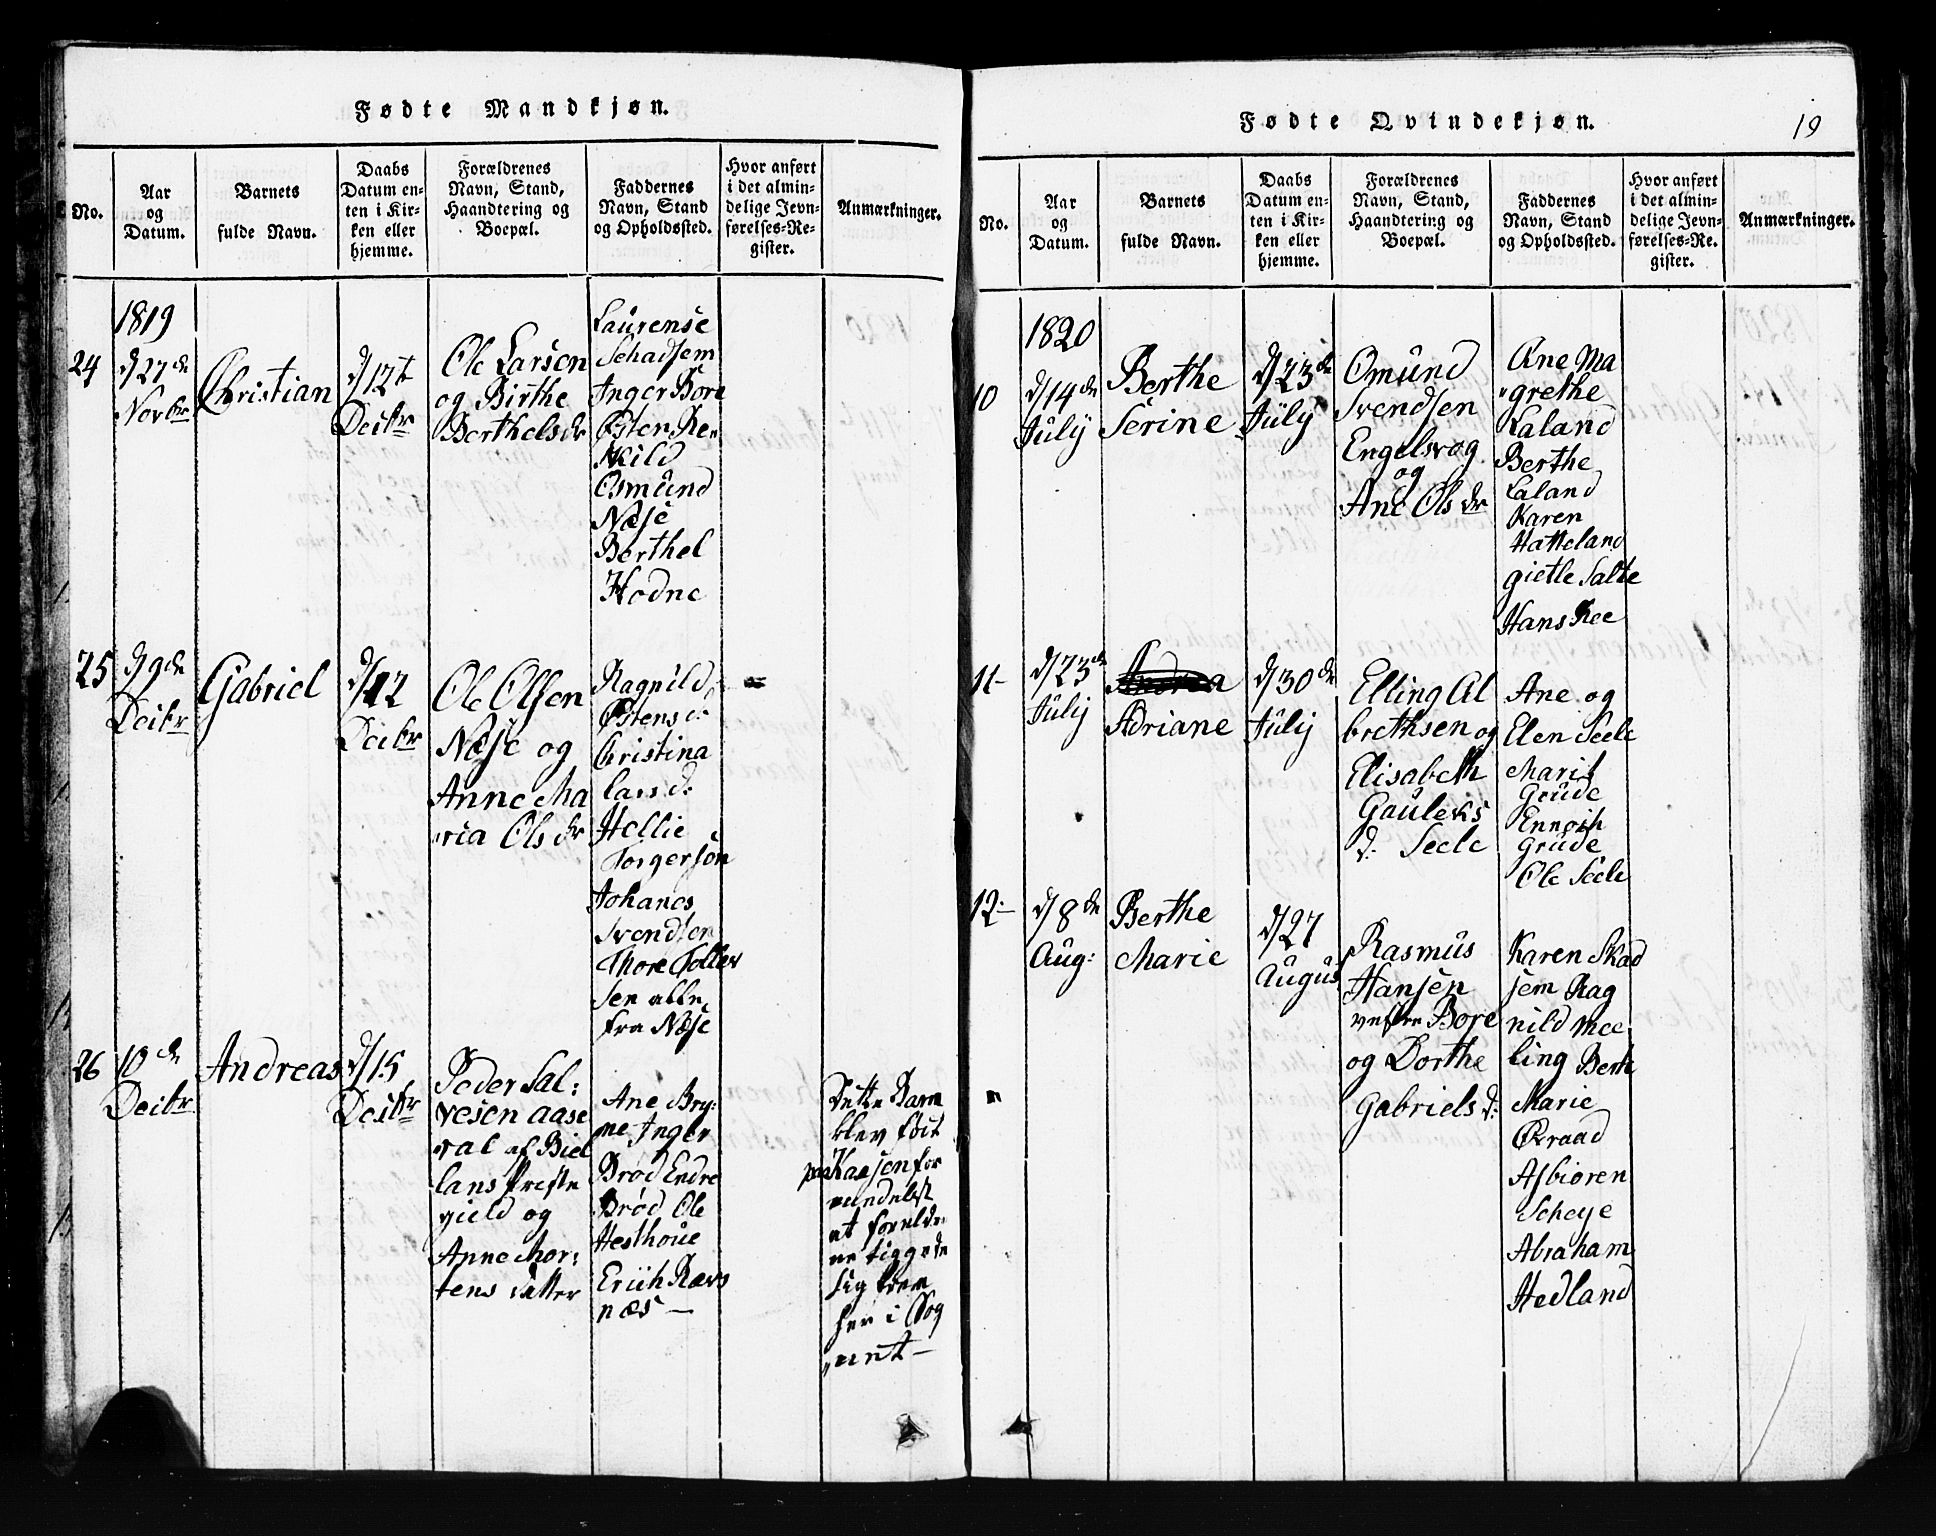 Fødte Mandkjøn.
No.
Aar
og
Datum.
Barnets
fulde Navn.
Daabs
Datum en-
ten i Kir-
ken eller
hjemme.
Forældrenes
Navn, Stand,
Haandtering og
Boepæl.
Faddernes
Navn, Stand
og Opholdssted.
Hvor anført
i det almin-
delige Jevn-
førelses-Re-
gister.
Anmærkninger.
1819
24
d/27de
Novbr
Christian
d/12t
Decbr
Ole Larsen
og Birthe
Berthelsdr
Laurense
Schadsem
Inger Bore
Østen Re
Osmund
Næse
Berthel
Hodne
25
d/9de
Decbr
Gabriel
d/12
Decbr
Ole Olsen
Næse og
Anne Ma
ria Olsdr
Ragnild
Østensd:
Christina
larsd:
Hellie
Torgersøn
Johanes
Svendsen
Thore Tolles
sen alle
fra Næse
26
10de
Decbr
Andreas
d/15
Decbr
Peder Sal:
vesen Aase
ral af Biel
lans Præste
gield og
Anne Mor:
tens datter
Ane Bry:
ne Inger
Brød Endre
Brød Ole
Hesthoue
Erich Rævs
næs —
Dette Barn
blev født
paa Raasen for
at forældre
ne tiggede
sig frem
her i Sog
net —
Fødte Qvindekjøn.
19
No.
Aar
og
Datum.
Barnets
fulde Navn.
Daabs
Datum en-
ten i Kir-
ken eller
hjemme.
Forældrenes
Navn, Stand,
Haandtering og
Boepæl.
Faddernes
Navn, Stand
og Opholdssted.
Hvor anført
i det almin-
delige Jevn-
førelses-Re-
gister.
Anmærkninger.
1820
10
d/14de
July
Berthe
Serine
d/23de
July
Omund
Svendsen
Engelsvog
og
Ane Olsdr
Ane Ma
grethe
Laland
Berthe
Laland
Karen
Hatteland
gietle Salte
Hans Ree
11
d/23de
July
Andrea
Adriane
d/30de
July
Elling Al
brethsen og
Elisabeth
Gaulets
d: Seele
Ane og
Elen Seele
Marit
Grude
Grude
Ole Seele
12
d/8de
Aug:
Berthe
Marie
d/27
August
Rasmus
Hansen
vestre Bore
og Dorthe
Gabrielsd:
Karen Skad
sem Rag
nild Mee
ling Berth
Marie
Øvraad
Asbiøren
Scheye
Abraham
Hedland